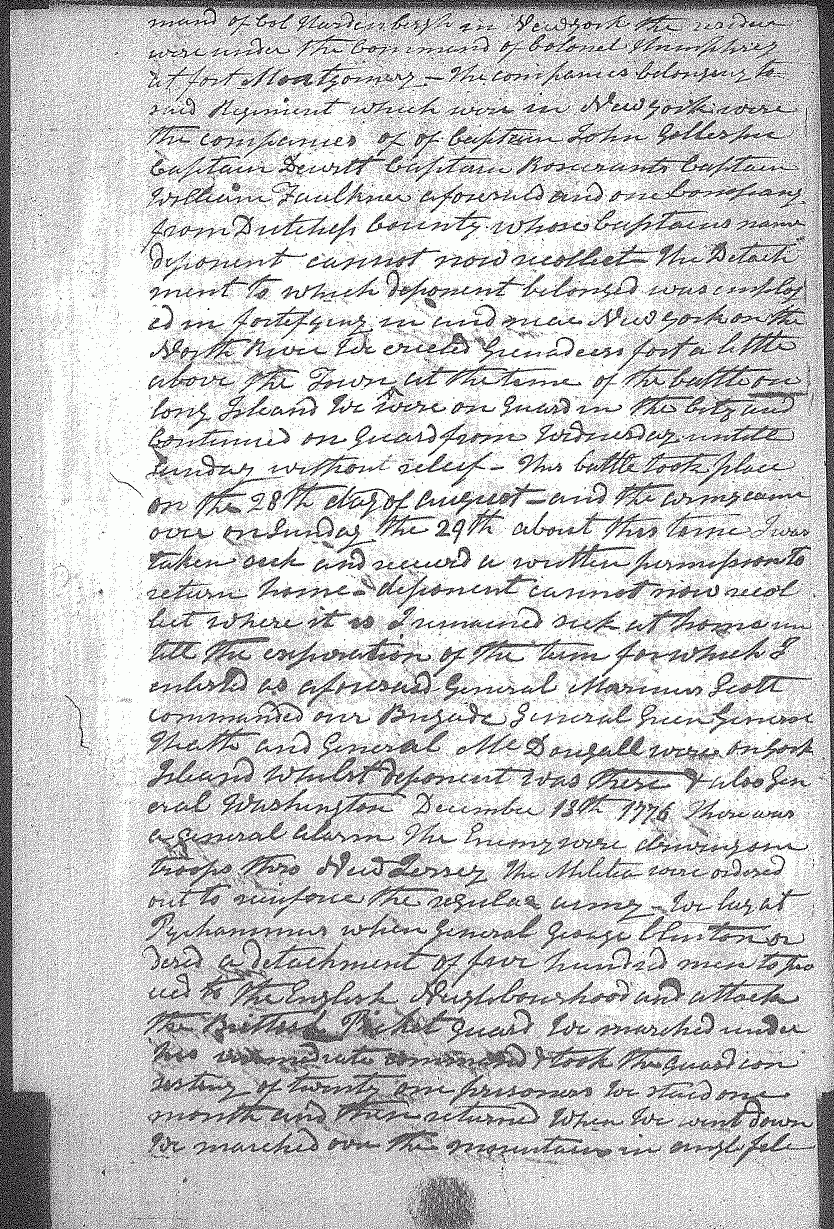 mand of Col Hardenbergh in New York the residue
were under the Command of Colonel Humphrey
at fort Montgomery – The companies belonging to
said Regiment which were in New York were
the companies of of Captain John Gillespie
Captain Dewitt Captain Rosecrants Captain
William Faulkner aforesaid and one Company
from Dutchess County whose Captains name
deponent cannot now recollect – The Detach
ment to which deponent belonged was employ
ed in fortifying in and near New York on the
North River We erected Grenadeers fort a little
above the Town at the time of the battle on
long Island We were on Guard in the City and
Continued on Guard from Wednesday untill
Sunday without relief – This battle took place
on the 28th day of august – and the army came
over on Sunday the 29th about this time I was
taken sick and received a written permission to
return home – deponent cannot now recol
lect where it is I remained sick at home un
till the expiration of the term for which I
enlisted as aforesaid General Morinus Scott
commanded our Brigade General Green General
Heath and General McDougall were on York
Island whilst deponent was there & also Gen
eral Washington December 13th 1776 There was
a general alarm The Enemy were driving our
troops thro New Jersey The Militia were ordered
out to reinforce the regular army – We lay at
Pyehammus when General George Clinton or
dered a detachment of five hundred men to pro
ceed to the English Neighbourhood and attack
the Brittish Picket guard We marched under
his immediate command & took the guard con
sisting of twenty one prisoners We staid one
month and then returned When We went down
We marched over the mountain in single file